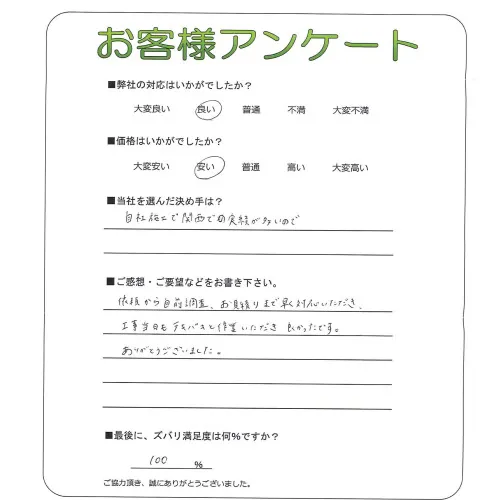 お客様アンケート
■弊社の対応はいかがでしたか？
大変良い 良い 普通 不満 大変不満
■価格はいかがでしたか？
大変安い 安い 普通 高い 大変高い
■当社を選んだ決め手は？
自社施工で関西での実績が多いので
■ご感想・ご要望などをお書き下さい。
依頼から事前調査、お見積りまで早く対応いただき、
工事当日もテキパキと作業いただき良かったです。
ありがとうございました。
■最後に、ズバリ満足度は何％ですか？
100 %
ご協力頂き、誠にありがとうございました。